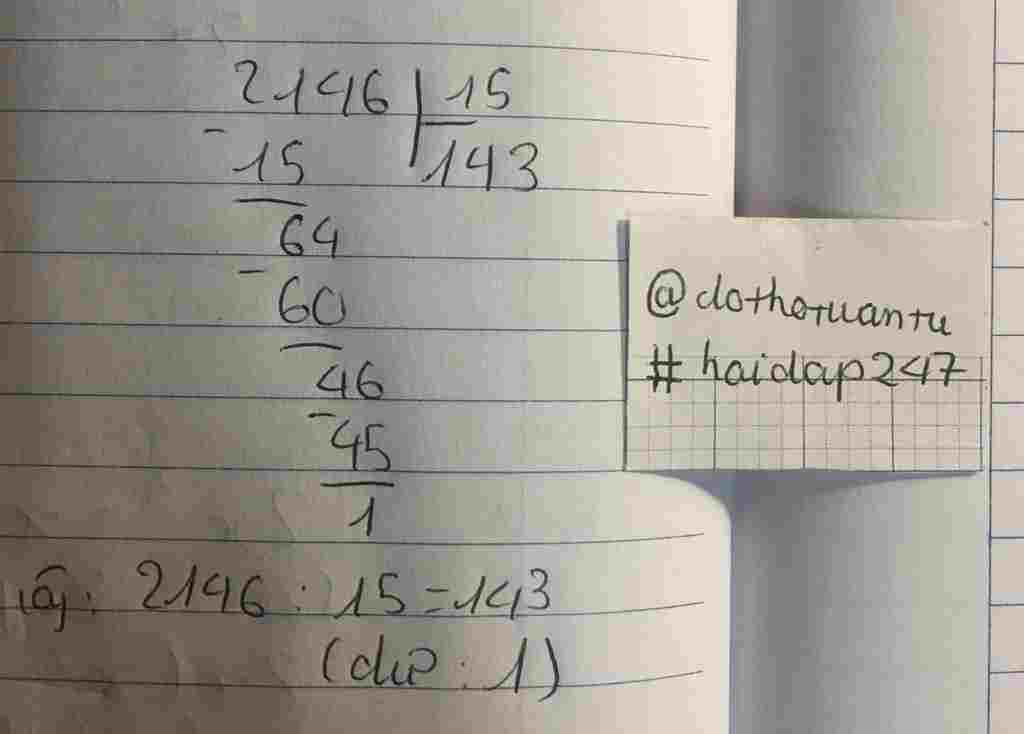 2146 15
- 15 143
64
- 60
46
- 45
1
2146 : 15 = 143
(dư : 1)
@dothotuantu
# hoidap247